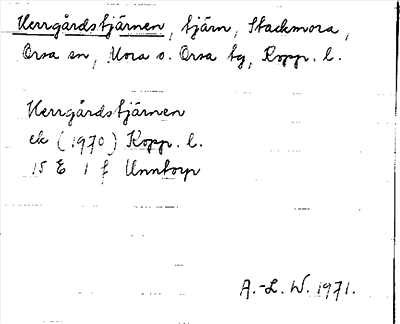 Herrgårdstjärnen, tjärn, Stackmora,
Orsa sn, Mora o. Orsa tg, Kopp. l.
Herrgårdstjärnen
ek (1970) Kopp. l.
15 E 1 f Unntorp
A.-L. W. 1971.